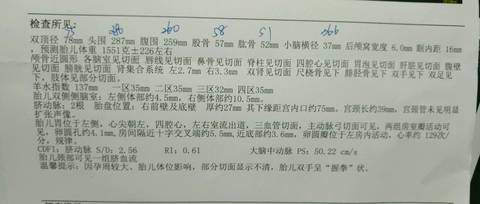 检查所见:
78 280 260 58 51 266
双顶径 78mm 头围 287mm 腹围 259mm 股骨 57mm 肱骨 52mm 小脑横径 37mm 后颅窝宽度 6.0mm 眼内距 16mm
, 预测胎儿体重 1551克±226左右
颅骨近圆形 各脑室见切面 唇线见切面 鼻骨见切面 脊柱见切面 四腔心见切面 胃泡见切面 肝脏见切面 腹壁
见切面 膀胱见切面 肾集合系统 左2.7mm 右3.3mm 双肾见切面 尺桡骨见下 胫腓骨见下 双手见下 双足见
下, 肢体见部分切面。
羊水指数 137mm 一区35mm 二区35mm 三区32mm 四区35mm
胎儿双侧侧脑室: 左侧体部约4.5mm, 右侧体部约10.5mm.
脐动脉: 2根 胎盘位置: 右前壁及底壁 厚约27mm 其下缘距宫内口约75mm, 宫颈长约39mm, 宫颈管未见明显
扩张声像。
胎儿胃位于左侧, 心尖朝左, 四腔心, 左右室流出道, 三血管切面, 主动脉弓切面可见, 两组房室瓣活动可
见, 卵圆孔约4.1mm, 房间隔近十字交叉端约5.5mm, 近底部约3.6mm, 卵圆瓣位于左房内活动, 心率约 129次/
分, 规律。
CDFI: 脐动脉 S/D: 2.56 RI: 0.61 大脑中动脉 PS: 50.22 cm/s
胎儿颈部可见一组脐血流
温馨提示: 因孕周较大、胎儿体位影响, 部分切面显示不清, 胎儿双手呈“握拳”状。